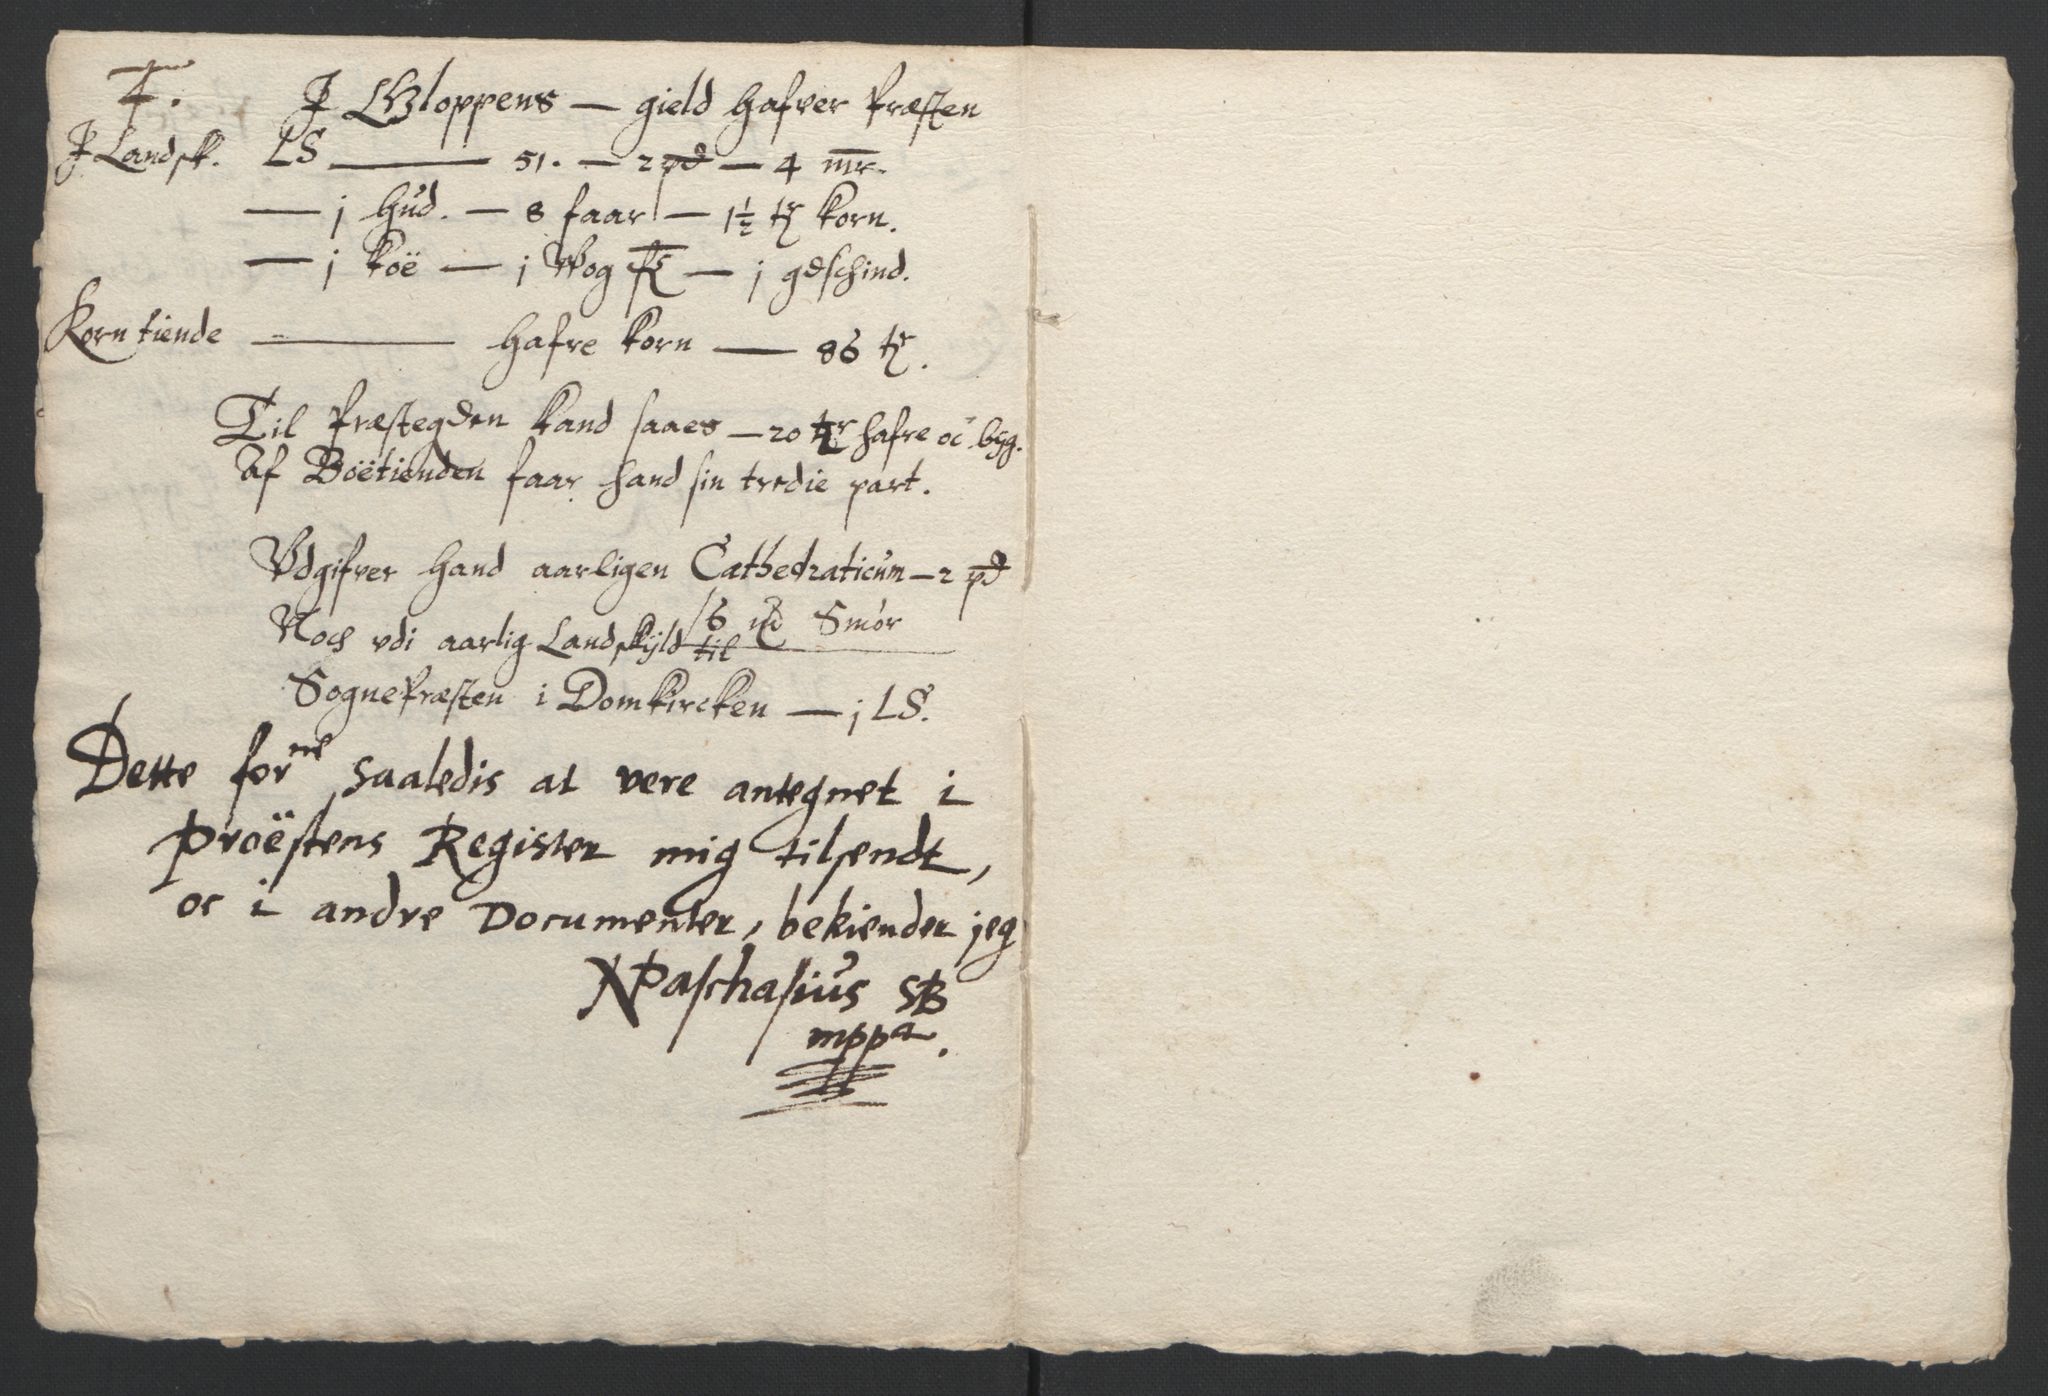 4.
J Gloppens — gield hafver Præsten
J Landsk. LS — 51. — 2 pd — 4 mr.
— j hud. — 8 faar — 1½ tr korn.
— j koë — j Wog — j gdschind.
Korn tiende — hafre korn — 86 tr.
Til Præstegden kand saaes — 20 tr hafre oc byg.
Af Böëtienden faar hand sin tredie part.
Vdgifver hand aarligen Cathedraticum — 2 pd
Noch vdi aarlig Landskyld til
Smör
Sognepræsten i Domkircken — j LS.
Dette forne saaledis at vere antegnet i
proëstens Register mig tilsendt,
oc i andre Documenter, bekiender jeg
NPaschasius SB
mppa.